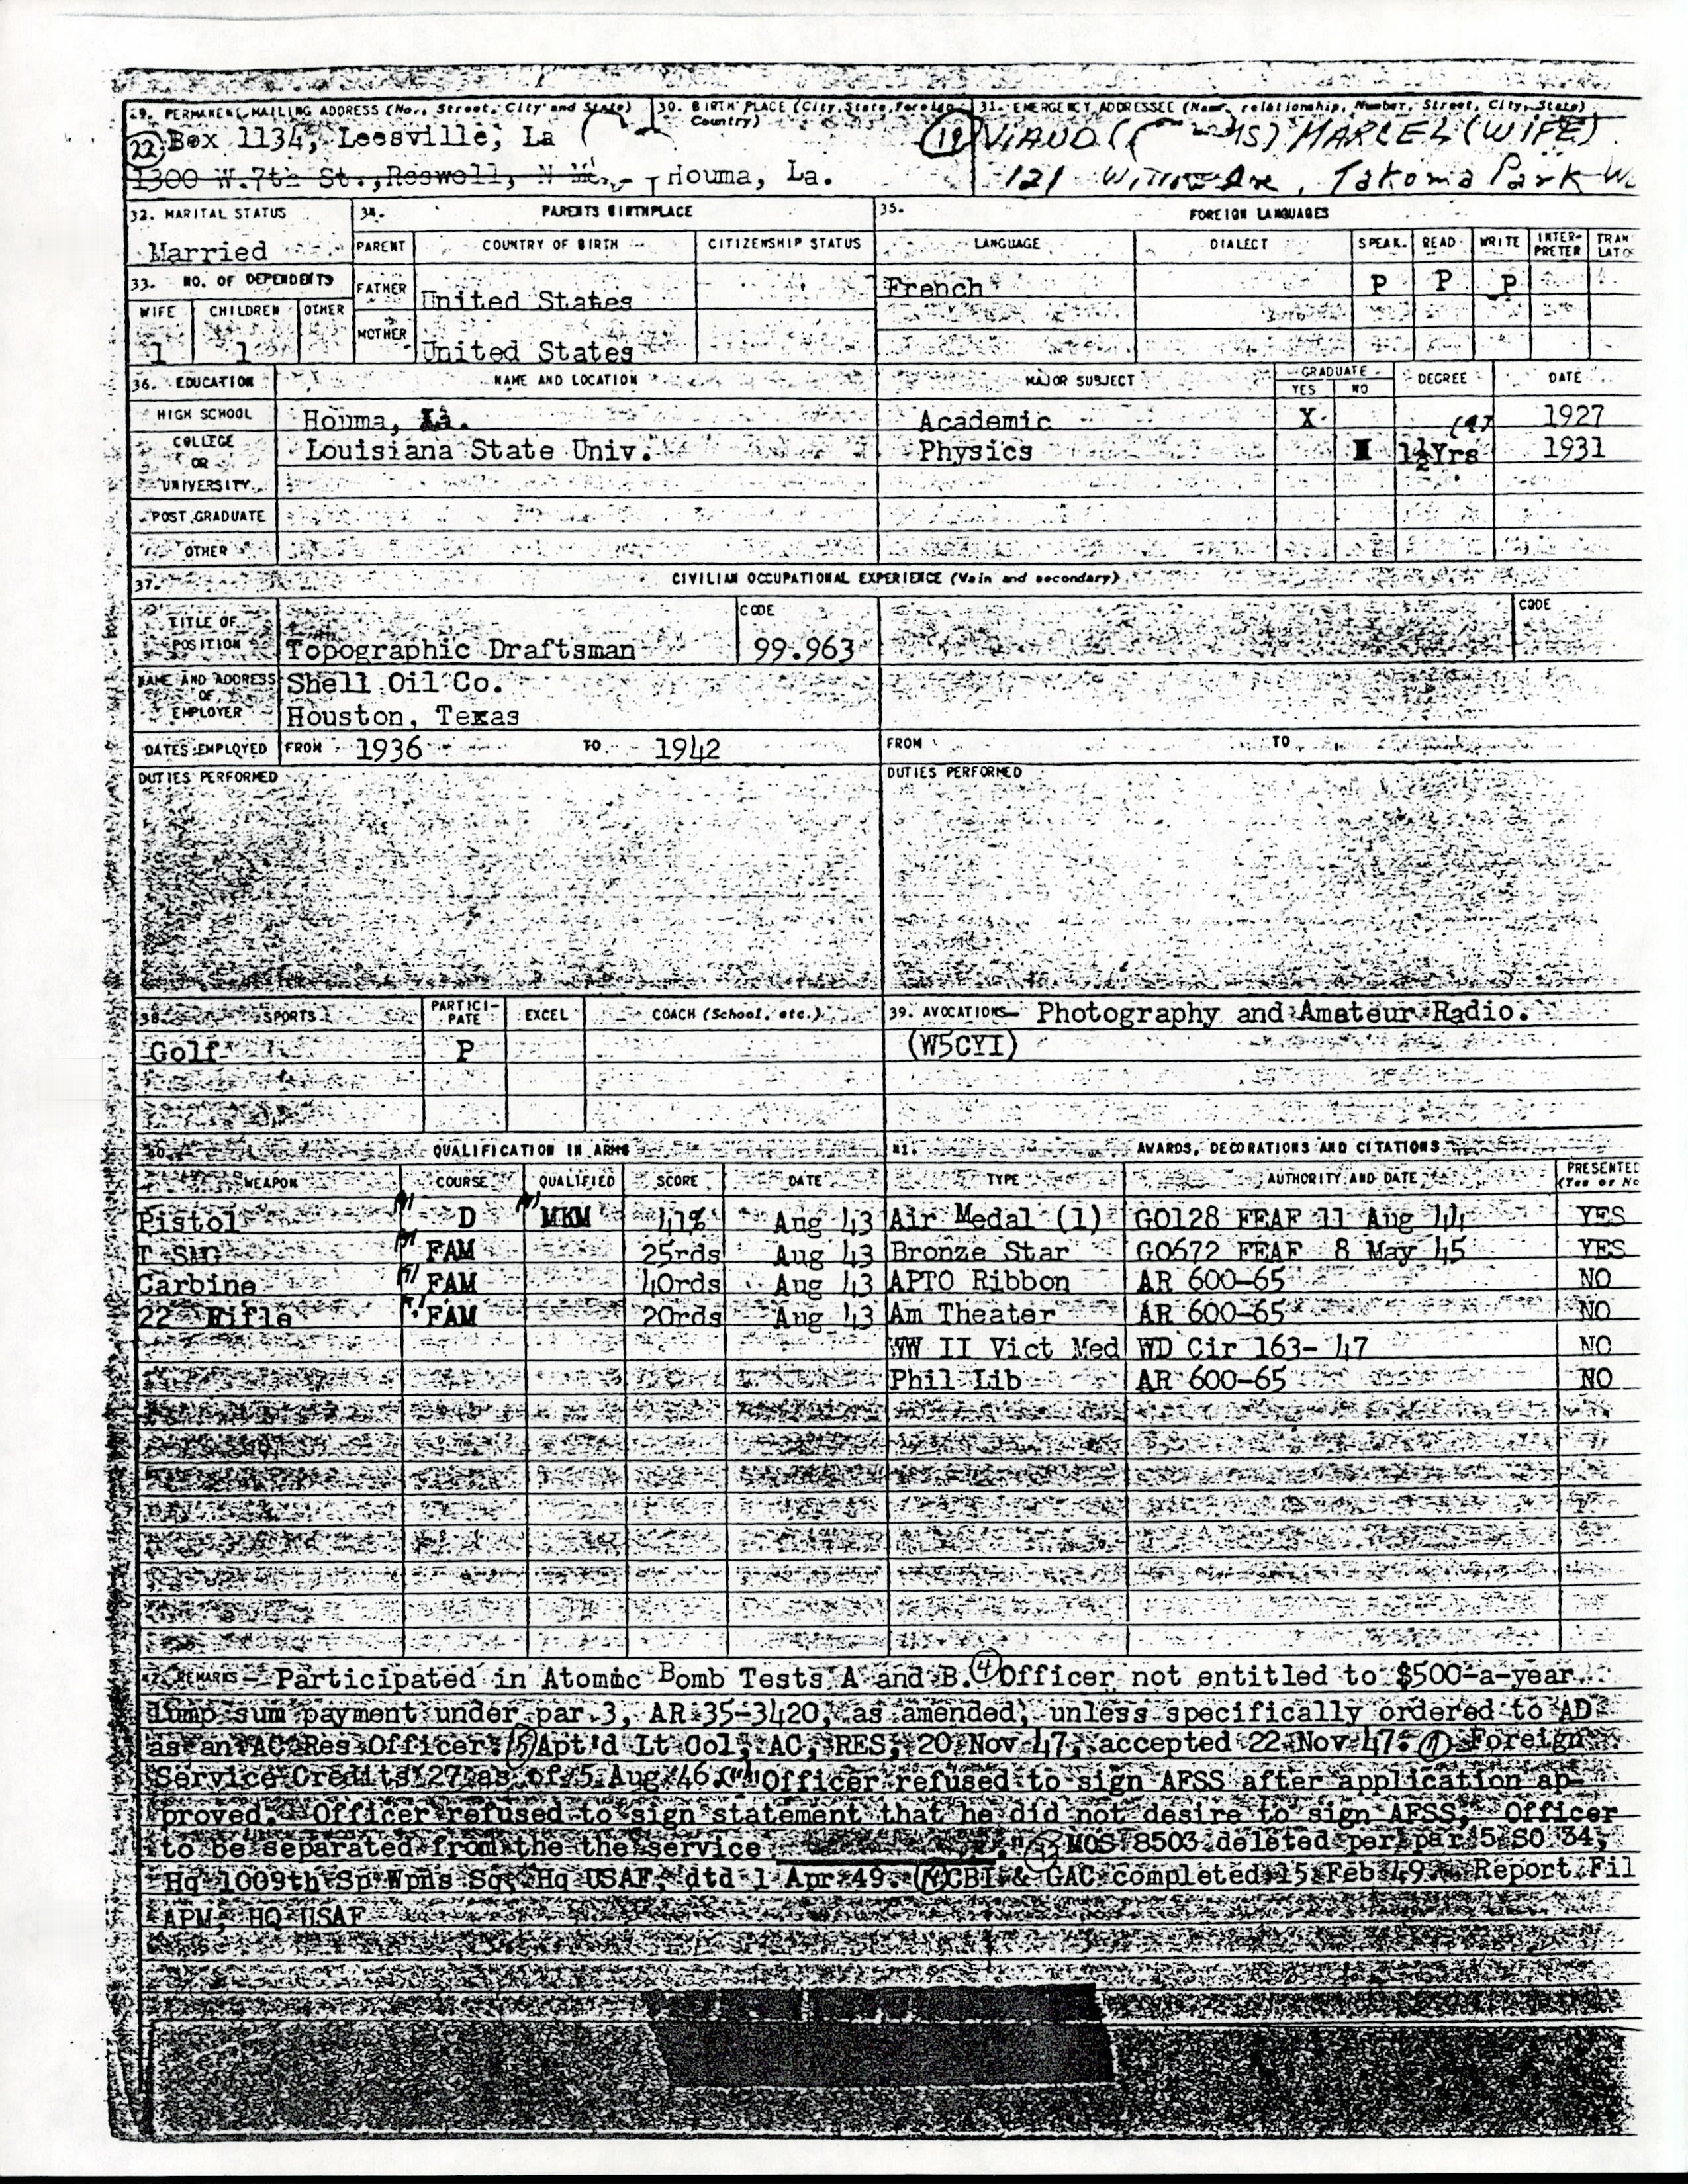 29. PERMANENT MAILING ADDRESS (No., Street, City and State)
22 Box 1134, Leesville, La
1300 W.7th St., Roswell, N M.
30. BIRTH PLACE (City, State, Foreign Country)
Houma, La.
31. EMERGENCY ADDRESSEE (Name, relationship, Number, Street, City, State)
19 VIAUD MARCEL (WIFE)
121 Willow Ave, Takoma Park
32. MARITAL STATUS
Married
33. NO. OF DEPENDENTS
WIFE CHILDREN OTHER
1 1
34. PARENTS BIRTHPLACE
PARENT COUNTRY OF BIRTH CITIZENSHIP STATUS
FATHER United States
MOTHER United States
35. FOREIGN LANGUAGES
LANGUAGE DIALECT SPEAK READ WRITE INTER-PRETER
French P P P
36. EDUCATION NAME AND LOCATION MAJOR SUBJECT GRADUATE YES NO DEGREE DATE
HIGH SCHOOL Houma, La. Academic X 1927
COLLEGE OR UNIVERSITY Louisiana State Univ. Physics 1½Yrs 1931
POST GRADUATE
OTHER
37. CIVILIAN OCCUPATIONAL EXPERIENCE (Main and secondary)
TITLE OF POSITION Topographic Draftsman CODE 99.963 CODE
NAME AND ADDRESS OF EMPLOYER Shell Oil Co.
Houston, Texas
DATES EMPLOYED FROM 1936 TO 1942 FROM TO
DUTIES PERFORMED DUTIES PERFORMED
38. SPORTS PARTICI-PATE EXCEL COACH (School, etc.)
Golf P
39. AVOCATIONS Photography and Amateur Radio.
(W5CYI)
40. QUALIFICATION IN ARMS
WEAPON COURSE QUALIFIED SCORE DATE
Pistol D MKM 41% Aug 43
T SMG FAM 25rds Aug 43
Carbine FAM 40rds Aug 43
22 Rifle FAM 20rds Aug 43
41. AWARDS, DECORATIONS AND CITATIONS
TYPE AUTHORITY AND DATE PRESENTED (Yes or No
Air Medal (1) GO128 FEAF 11 Aug 44 YES
Bronze Star GO672 FEAF 8 May 45 YES
APTO Ribbon AR 600-65 NO
Am Theater AR 600-65 NO
WW II Vict Med WD Cir 163- 47 NO
Phil Lib AR 600-65 NO
42. REMARKS - Participated in Atomic Bomb Tests A and B. 4 Officer not entitled to $500-a-year
lump sum payment under par 3, AR 35-3420, as amended, unless specifically ordered to AD
as an AC Res Officer. Apt'd Lt Col, AC, RES, 20 Nov 47, accepted 22 Nov 47. Foreign
Service Credits 27 as of 5 Aug 46. "Officer refused to sign AFSS after application ap-
proved. Officer refused to sign statement that he did not desire to sign AFSS, Officer
to be separated from the the service." MOS 8503 deleted per par 5 SO 34,
Hq 1009th Sp Wpns Sq, Hq USAF, dtd 1 Apr 49. CBI & GAC completed 15 Feb 49. Report Fil
APM, HQ USAF